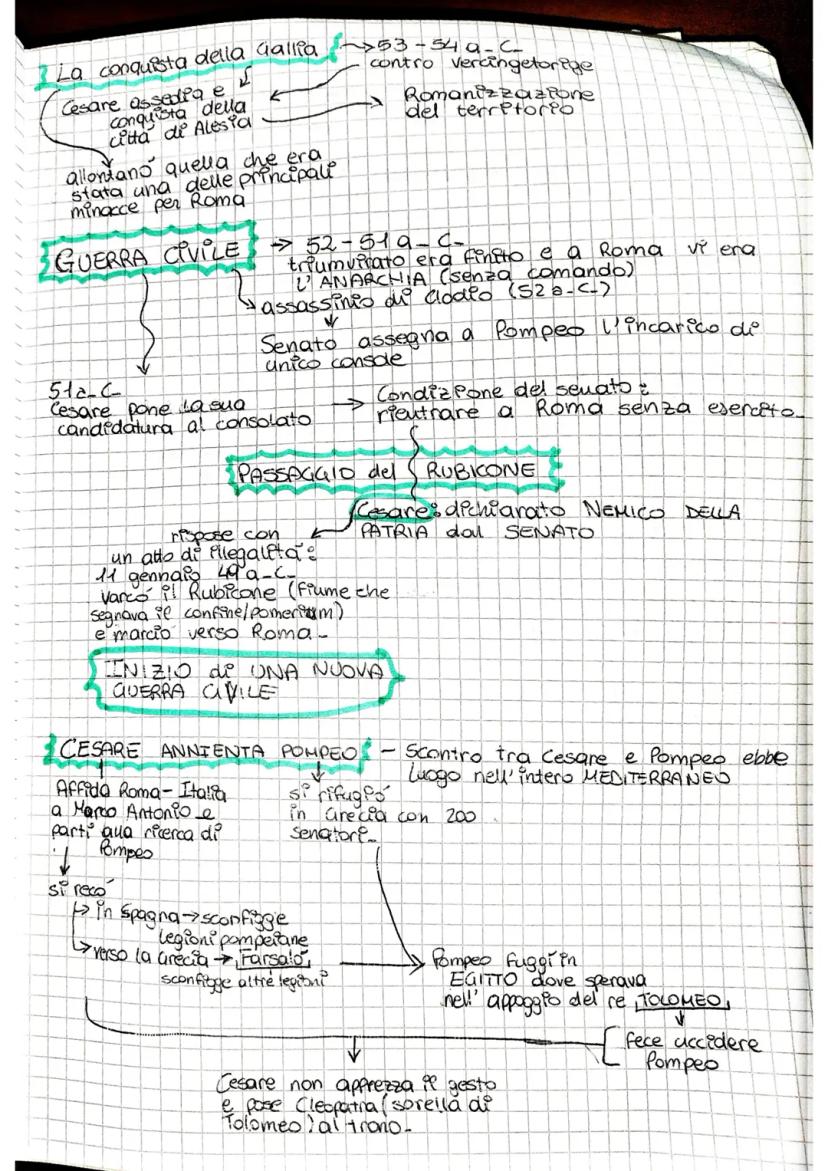 La conquista della Gallia → 53-54 a.C.
contro Vercingetorige
Cesare assedia e
conquista della
città di Alesia
Romanizzazione
del territorio
allontanò quella che era
stata una delle principali
minacce per Roma
GUERRA CIVILE → 52-51 a.C.
triumvirato era finito e a Roma vi era
L'ANARCHIA (senza comando)
assassinio di Clodio (52 a.C.)
Senato assegna a Pompeo l'incarico di
unico console
51 a.C.
Cesare pone la sua
candidatura al consolato
→ Condizione del senato:
rientrare a Roma senza esercito.
PASSAGGIO del RUBICONE
Cesare: dichiarato NEMICO DELLA
PATRIA dal SENATO
rispose con
un atto di illegalità:
11 gennaio 49 a.C.
varcò il Rubicone (fiume che
segnava il confine/pomerium)
e marciò verso Roma.
INIZIO di UNA NUOVA
GUERRA CIVILE
CESARE ANNIENTA POMPEO - Scontro tra Cesare e Pompeo ebbe
luogo nell'intero MEDITERRANEO
Affida Roma-Italia
a Marco Antonio e
partì alla ricerca di
Pompeo
si rifugiò
in Grecia con 200
senatori.
si recò
in Spagna → sconfigge
legioni pompeiane
verso la Grecia → Farsalo,
sconfigge altre legioni
Pompeo fuggì in
EGITTO dove sperava
nell'appoggio del re TOLOMEO
fece uccidere
Pompeo
Cesare non apprezza il gesto
e pose Cleopatra (sorella di
Tolomeo) al trono.